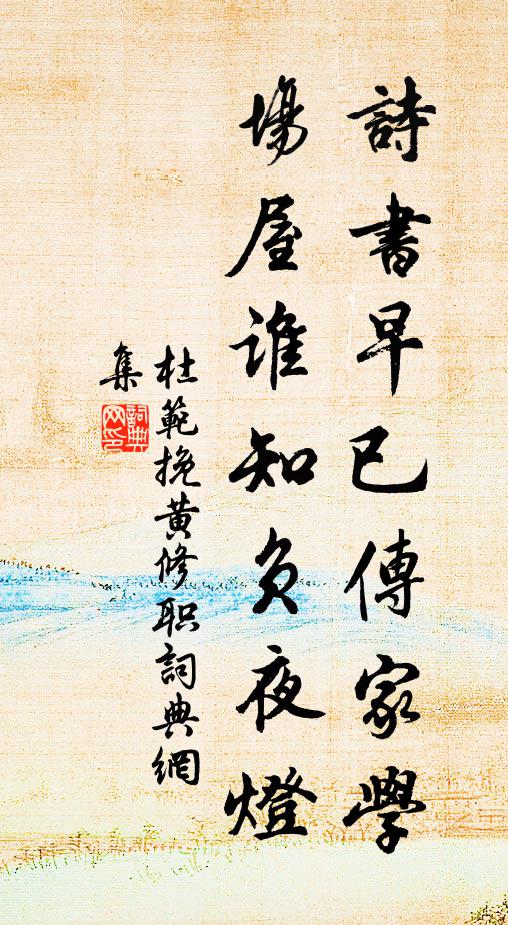 詩書早已傳家學
場屋誰知負夜燈
杜範挽黃修职詞典網
集
詞典
网印